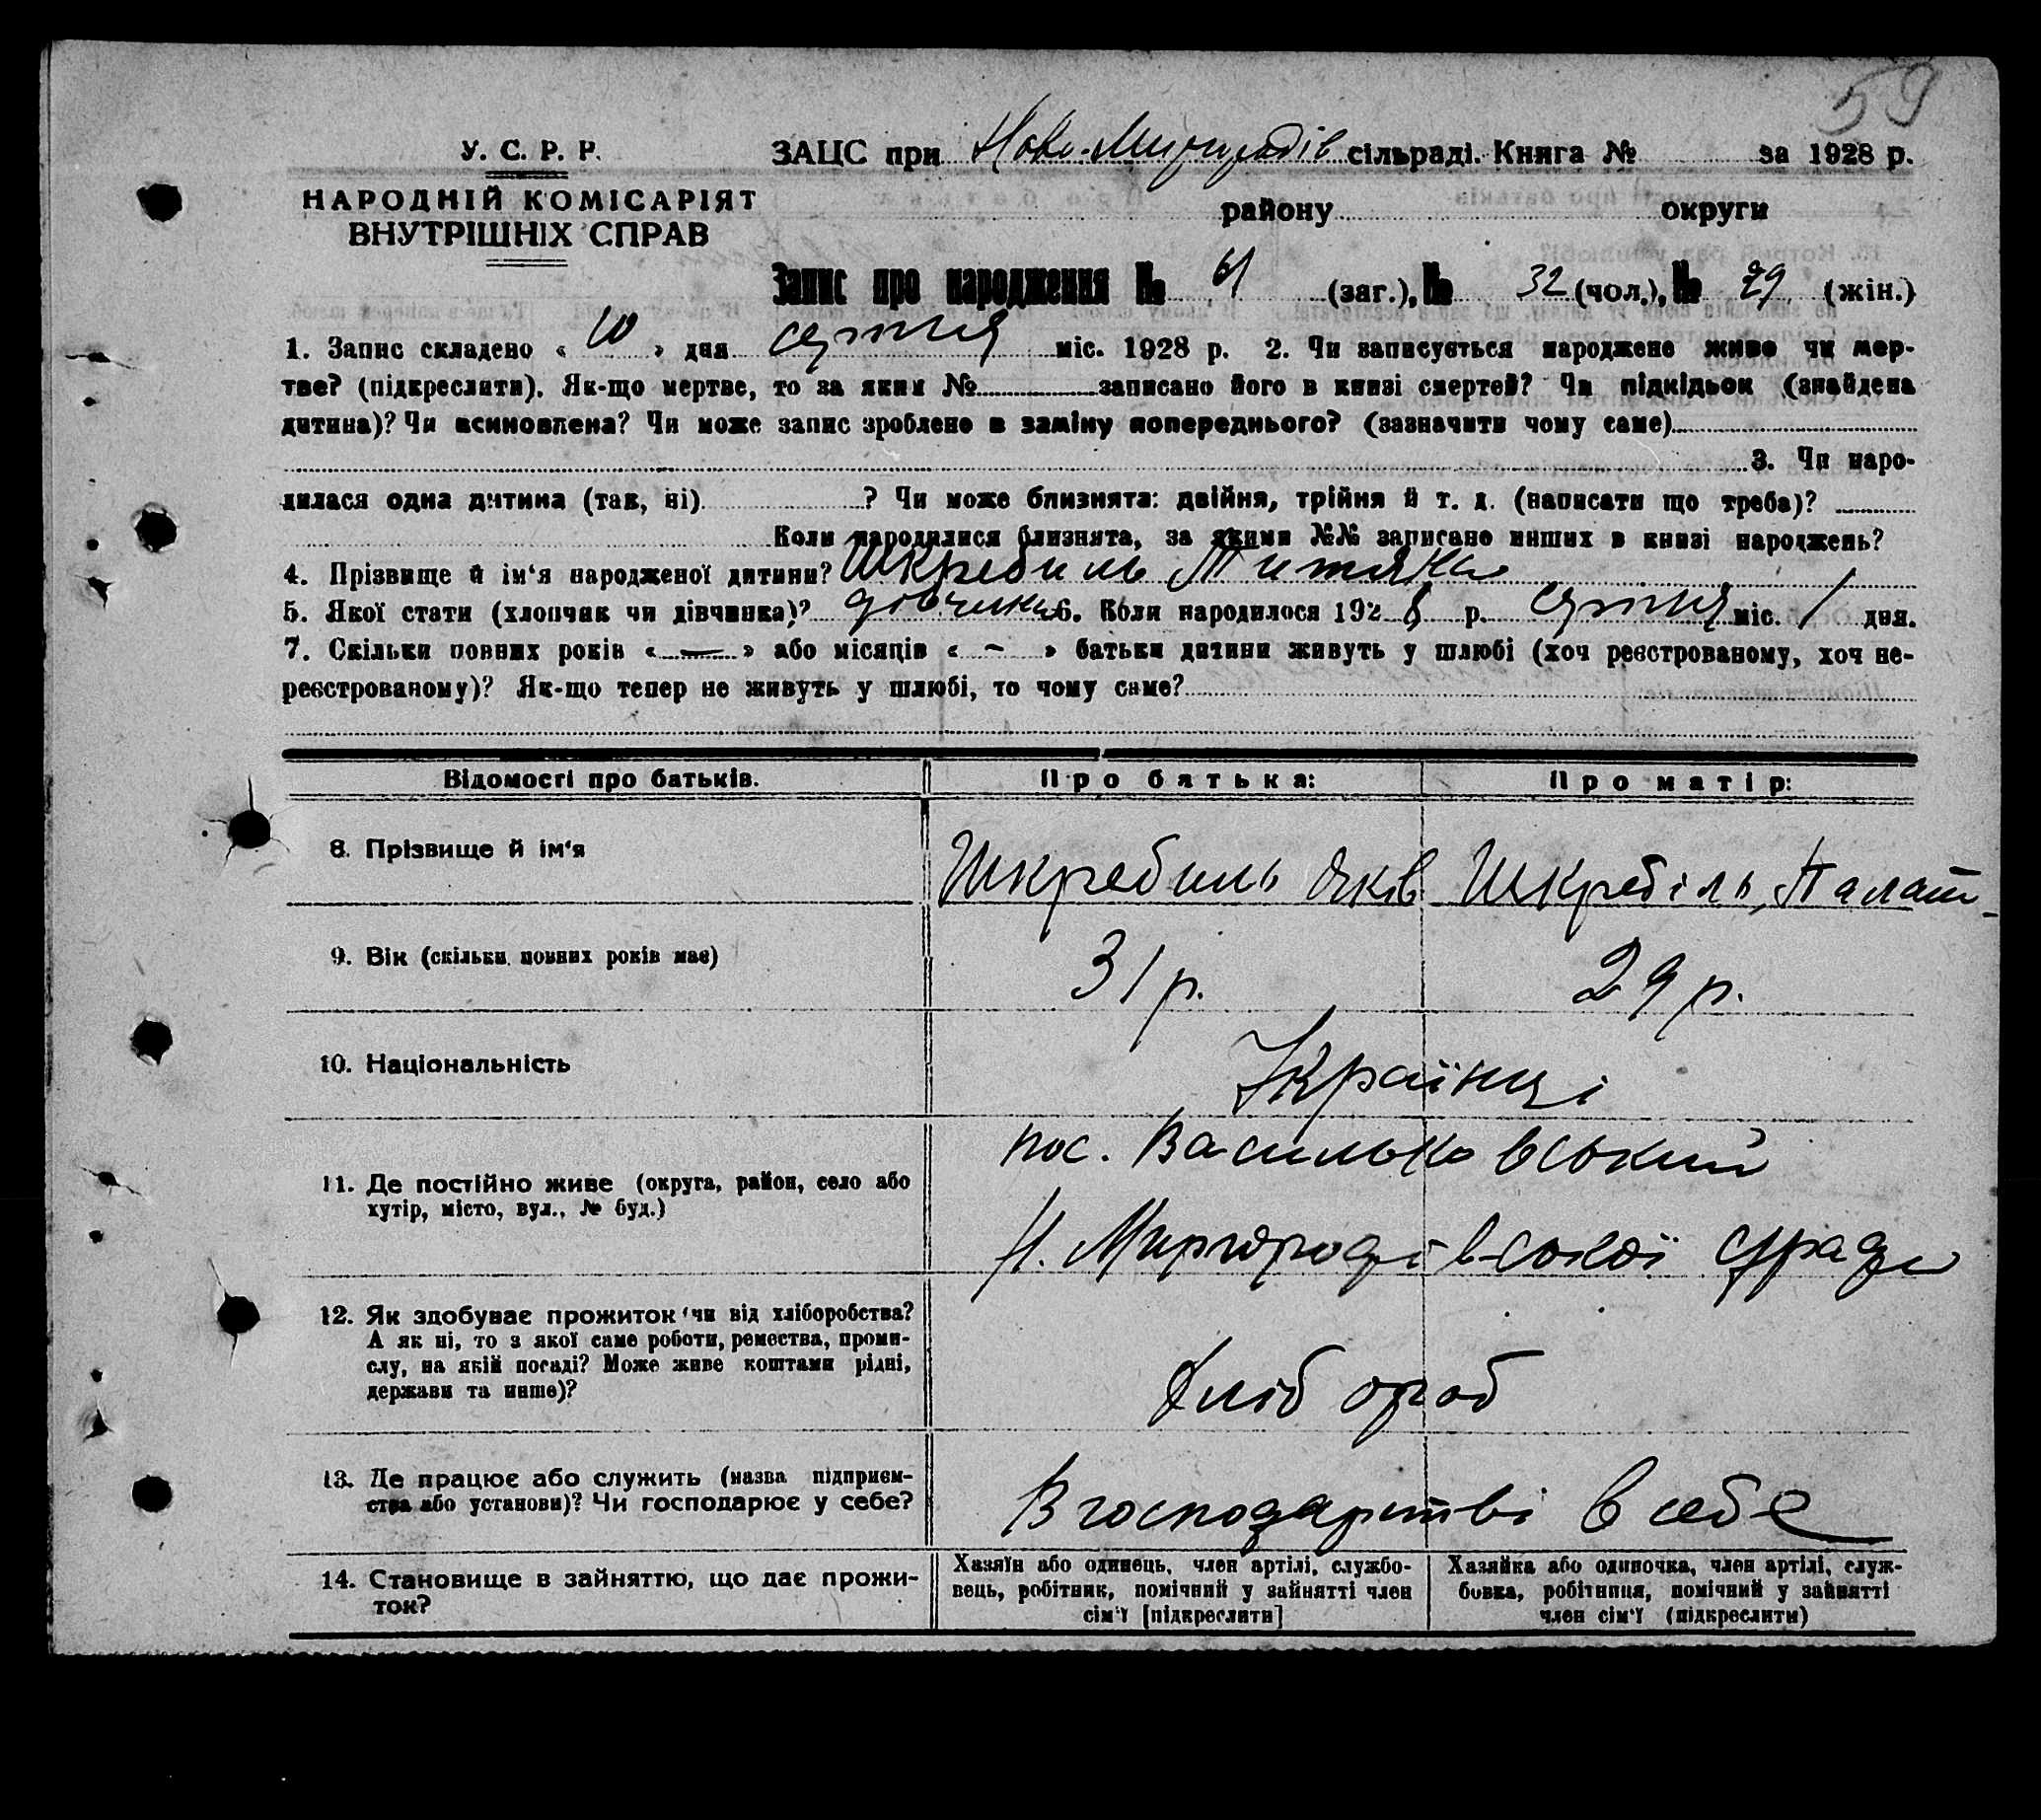 59
У. С. Р. Р.
НАРОДНІЙ КОМІСАРІЯТ
ВНУТРІШНІХ СПРАВ
ЗАЦС при Ново-Миргородів сільраді. Книга № за 1928 р.
району округи
Запис про народження № 61 (заг.), № 32 (чол.), № 29 (жін.)
1. Запис складено « 10 » дня серпня міс. 1928 р. 2. Чи записується народжене живе чи мер-
тве? (підкреслити). Як-що мертве, то за яким № записано його в книзі смертей? Чи підкідьок (знайдена
дитина)? Чи асиновлена? Чи може запис зроблено в заміну попереднього? (зазначити чому саме)
3. Чи наро-
дилася одна дитина (так, ні) ? Чи може близнята: двійня, трійня й т. д. (написати що треба)?
Коли народилися близнята, за якими №№ записано инших в книзі народжень?
4. Прізвище й ім‘я народженої дитини? Шкребиль
5. Якої стати (хлопчак чи дівчинка)? дівчинка 6. Коли народилося 1928 р. серпня міс. 1 дня.
7. Скільки повних років « — » або місяців « - » батьки дитини живуть у шлюбі (хоч реєстрованому, хоч не-
реєстрованому)? Як-що тепер не живуть у шлюбі, то чому саме?
Відомості про батьків. Про батька: Про матір:
8. Прізвище й ім‘я Шкребиль Яків Шкребіль Палаж-
9. Вік (скільки повних років має) 31 р. 29 р.
10. Національність Українці
11. Де постійно живе (округа, район, село або
хутір, місто, вул., № буд.)
пос. Васильковський
Н. Миргородівської с/ради
12. Як здобуває прожиток чи від хліборобства?
А як ні, то з якої саме роботи, ремества, проми-
слу, на якій посаді? Може живе коштами рідні,
держави та инше)?
Хлібороб
13. Де працює або служить (назва підприєм-
ства або установи)? Чи господарює у себе?
В господарстві в себе
14. Становище в зайняттю, що дає прожи-
ток?
Хазяїн або одинець, член артілі, службо-
вець, робітник, помічний у зайнятті член
сім‘ї [підкреслити]
Хазяйка або одиночка, член артілі, служ-
бовка, робітниця, помічний у зайнятті
член сім‘ї (підкреслити)